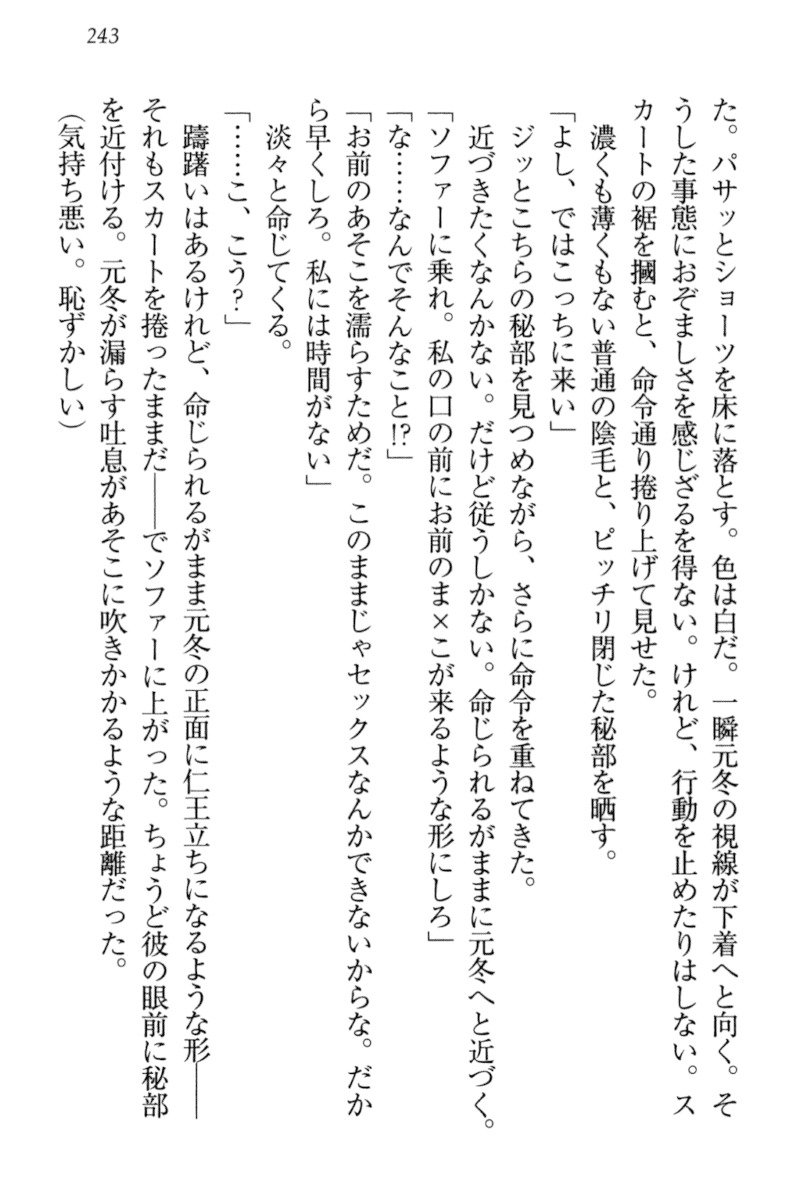 243
た。パサッとショーツを床に落とす。色は白だ。一瞬元冬の視線が下着へと向く。そ
うした事態におぞましさを感じざるを得ない。けれど、行動を止めたりはしない。ス
カートの裾を摑むと、命令通り捲り上げて見せた。
濃くも薄くもない普通の陰毛と、ピッチリ閉じた秘部を晒す。
「よし、ではこっちに来い」
ジッとこちらの秘部を見つめながら、さらに命令を重ねてきた。
近づきたくなんかない。だけど従うしかない。命じられるがままに元冬へと近づく。
「ソファーに乗れ。私の口の前にお前のま×こが来るような形にしろ」
「な……なんでそんなこと!?」
「お前のあそこを濡らすためだ。このままじゃセックスなんかできないからな。だか
ら早くしろ。私には時間がない」
淡々と命じてくる。
「……こ、こう？」
躊躇いはあるけれど、命じられるがまま元冬の正面に仁王立ちになるような形――
それもスカートを捲ったままだ――でソファーに上がった。ちょうど彼の眼前に秘部
を近付ける。元冬が漏らす吐息があそこに吹きかかるような距離だった。
（気持ち悪い。恥ずかしい）